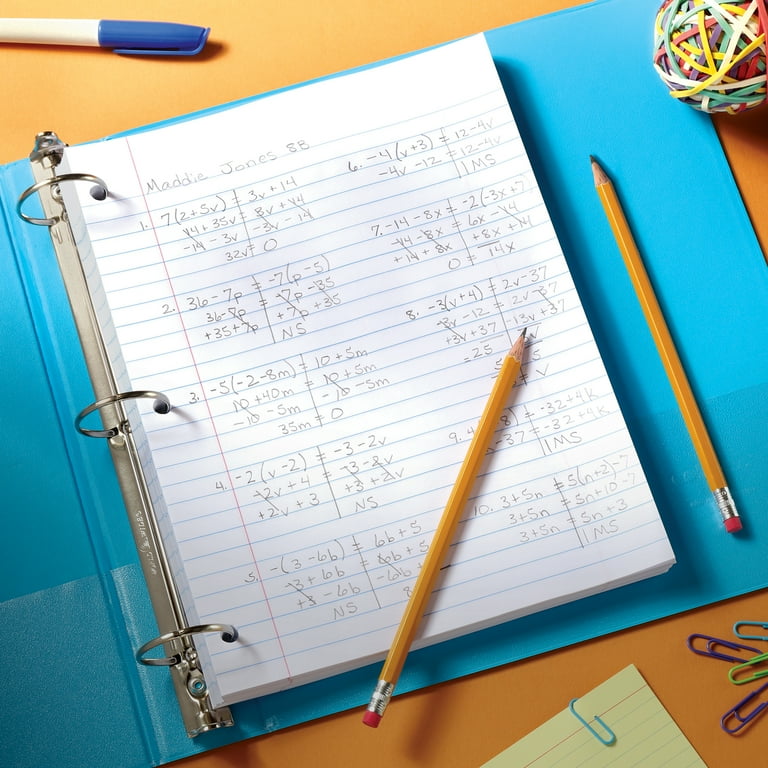 Maddie Jones 8B
1. 7(2+5v) = 3v + 14
14 + 35v = 3v + 14
-14 - 3v = -3v - 14
32v = 0
2. 36 - 7p = -7(p - 5)
36 - 7p = -7p + 35
+35 + 7p +7p + 35
NS
3. -5(-2 - 8m) = 10 + 5m
10 + 40m = 10 + 5m
-10 - 5m -10 - 5m
35m = 0
4. -2(v - 2) = -3 - 2v
-2v + 4 = -3 - 2v
+2v + 3 +3 + 2v
NS
5. -(3 - 6b) = 6b + 5
-3 + 6b = 6b + 5
+3 - 6b -6b
NS 8
6. -4(v + 3) = 12 - 4v
-4v - 12 = 12 - 4v
IMS
7. -14 - 8x = -2(-3x + 7
-14 - 8x = 6x - 14
+14 + 8x +8x + 14
0 = 14x
8. -3(v + 4) = 2v - 37
-3v - 12 = 2v - 37
+3v + 37 -13v + 37
= 25 v
5 5
= v
9. 4 8) = -32 + 4k
-37 = -32 + 4k
IMS
10. 3 + 5n = 5(n + 2) - 7
3 + 5n = 5n + 10 - 7
3 + 5n = 5n + 3
IMS